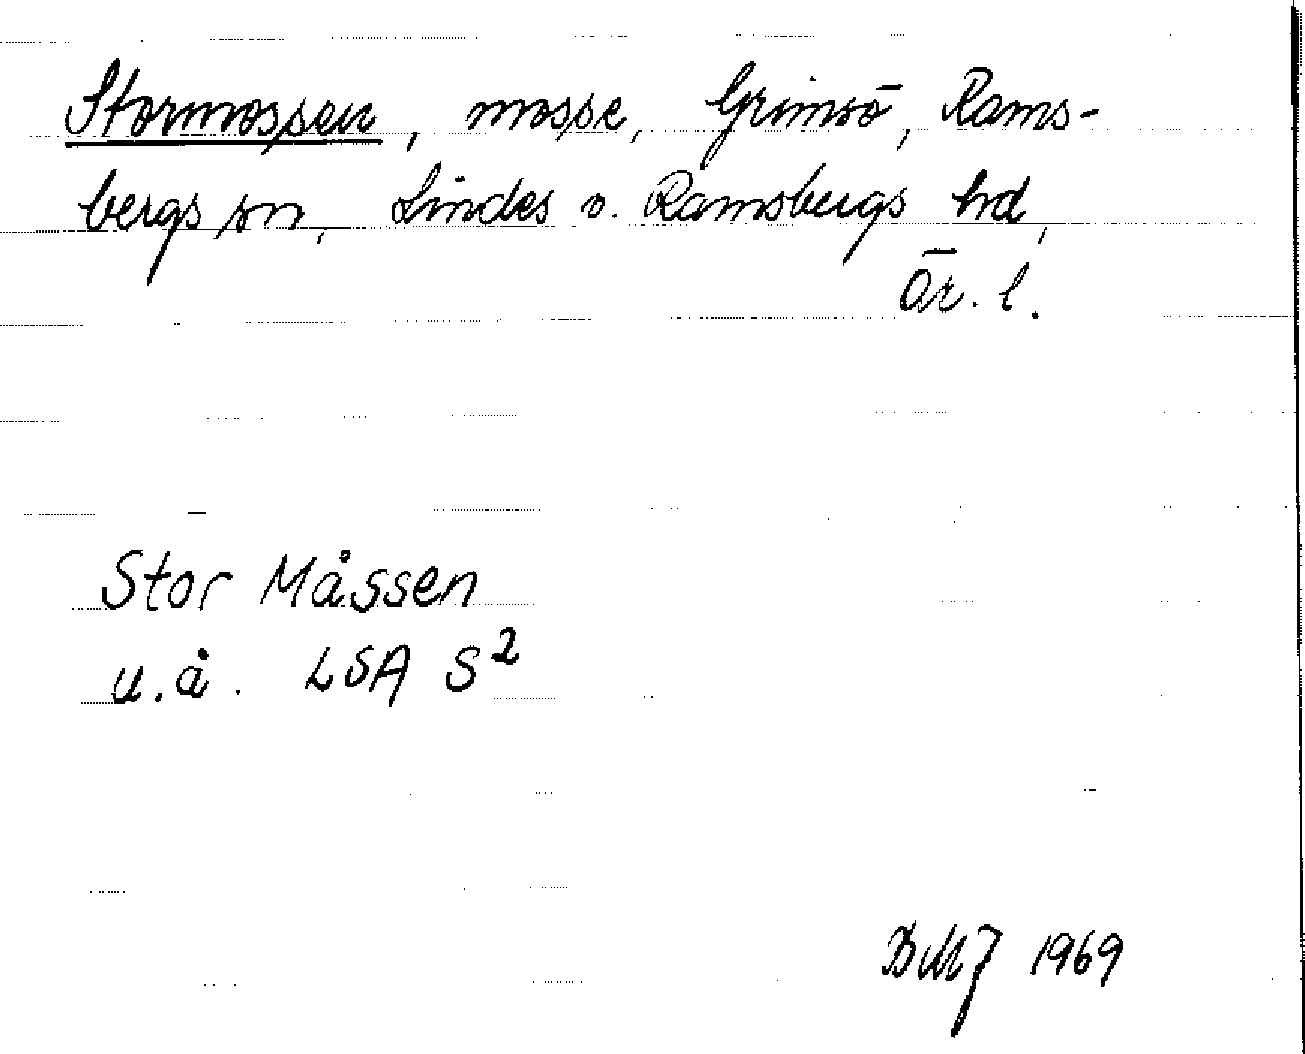 Stormossen, mosse, Grimsö, Rams-
bergs sn, Lindes o. Ramsbergs hd,
Ör. l.
Stor Måssen
u.å. LSA S²
BMJ 1969